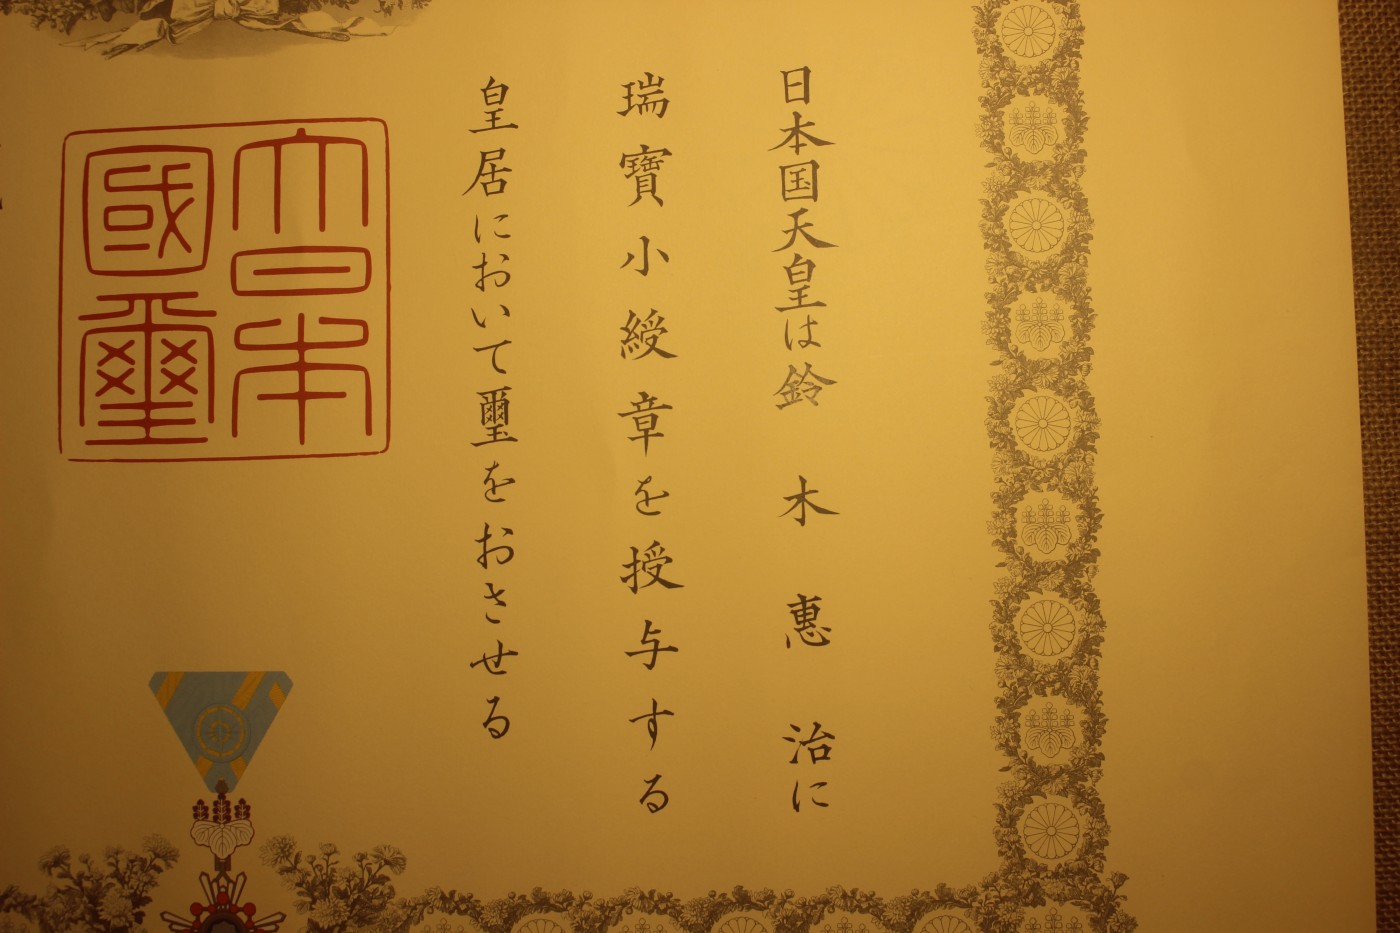 日本国天皇は鈴木惠治に
瑞寶小綬章を授与する
皇居において璽をおさせる
大日本國璽